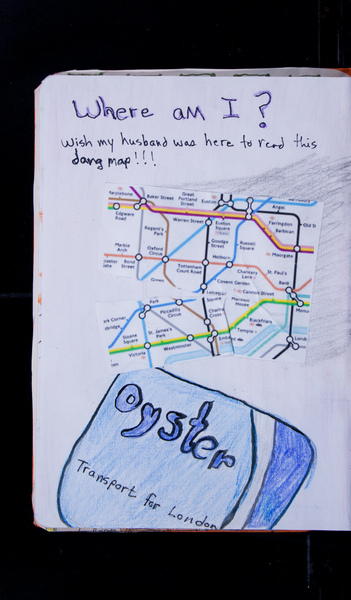 Where am I?
Wish my husband was here to read this
dang map!!!
Baker Street
Great
Portland
Street
Euston
Angel
Edgware
Road
Warren Street
Euston
Square
Farringdon
Barbican
Old St
Regent's
Park
Goodge
Street
Russell
Square
Moorgate
Marble
Arch
Bond
Street
Oxford
Circus
Tottenham
Court Road
Holborn
Chancery
Lane
St. Paul's
Bank
Green
Covent Garden
Cannon Street
Mansion
House
Park
Piccadilly
Circus
Charing
Cross
Blackfriars
Sloane
Square
St. James's
Park
Temple
Victoria
Westminster
Oyster
Transport for London